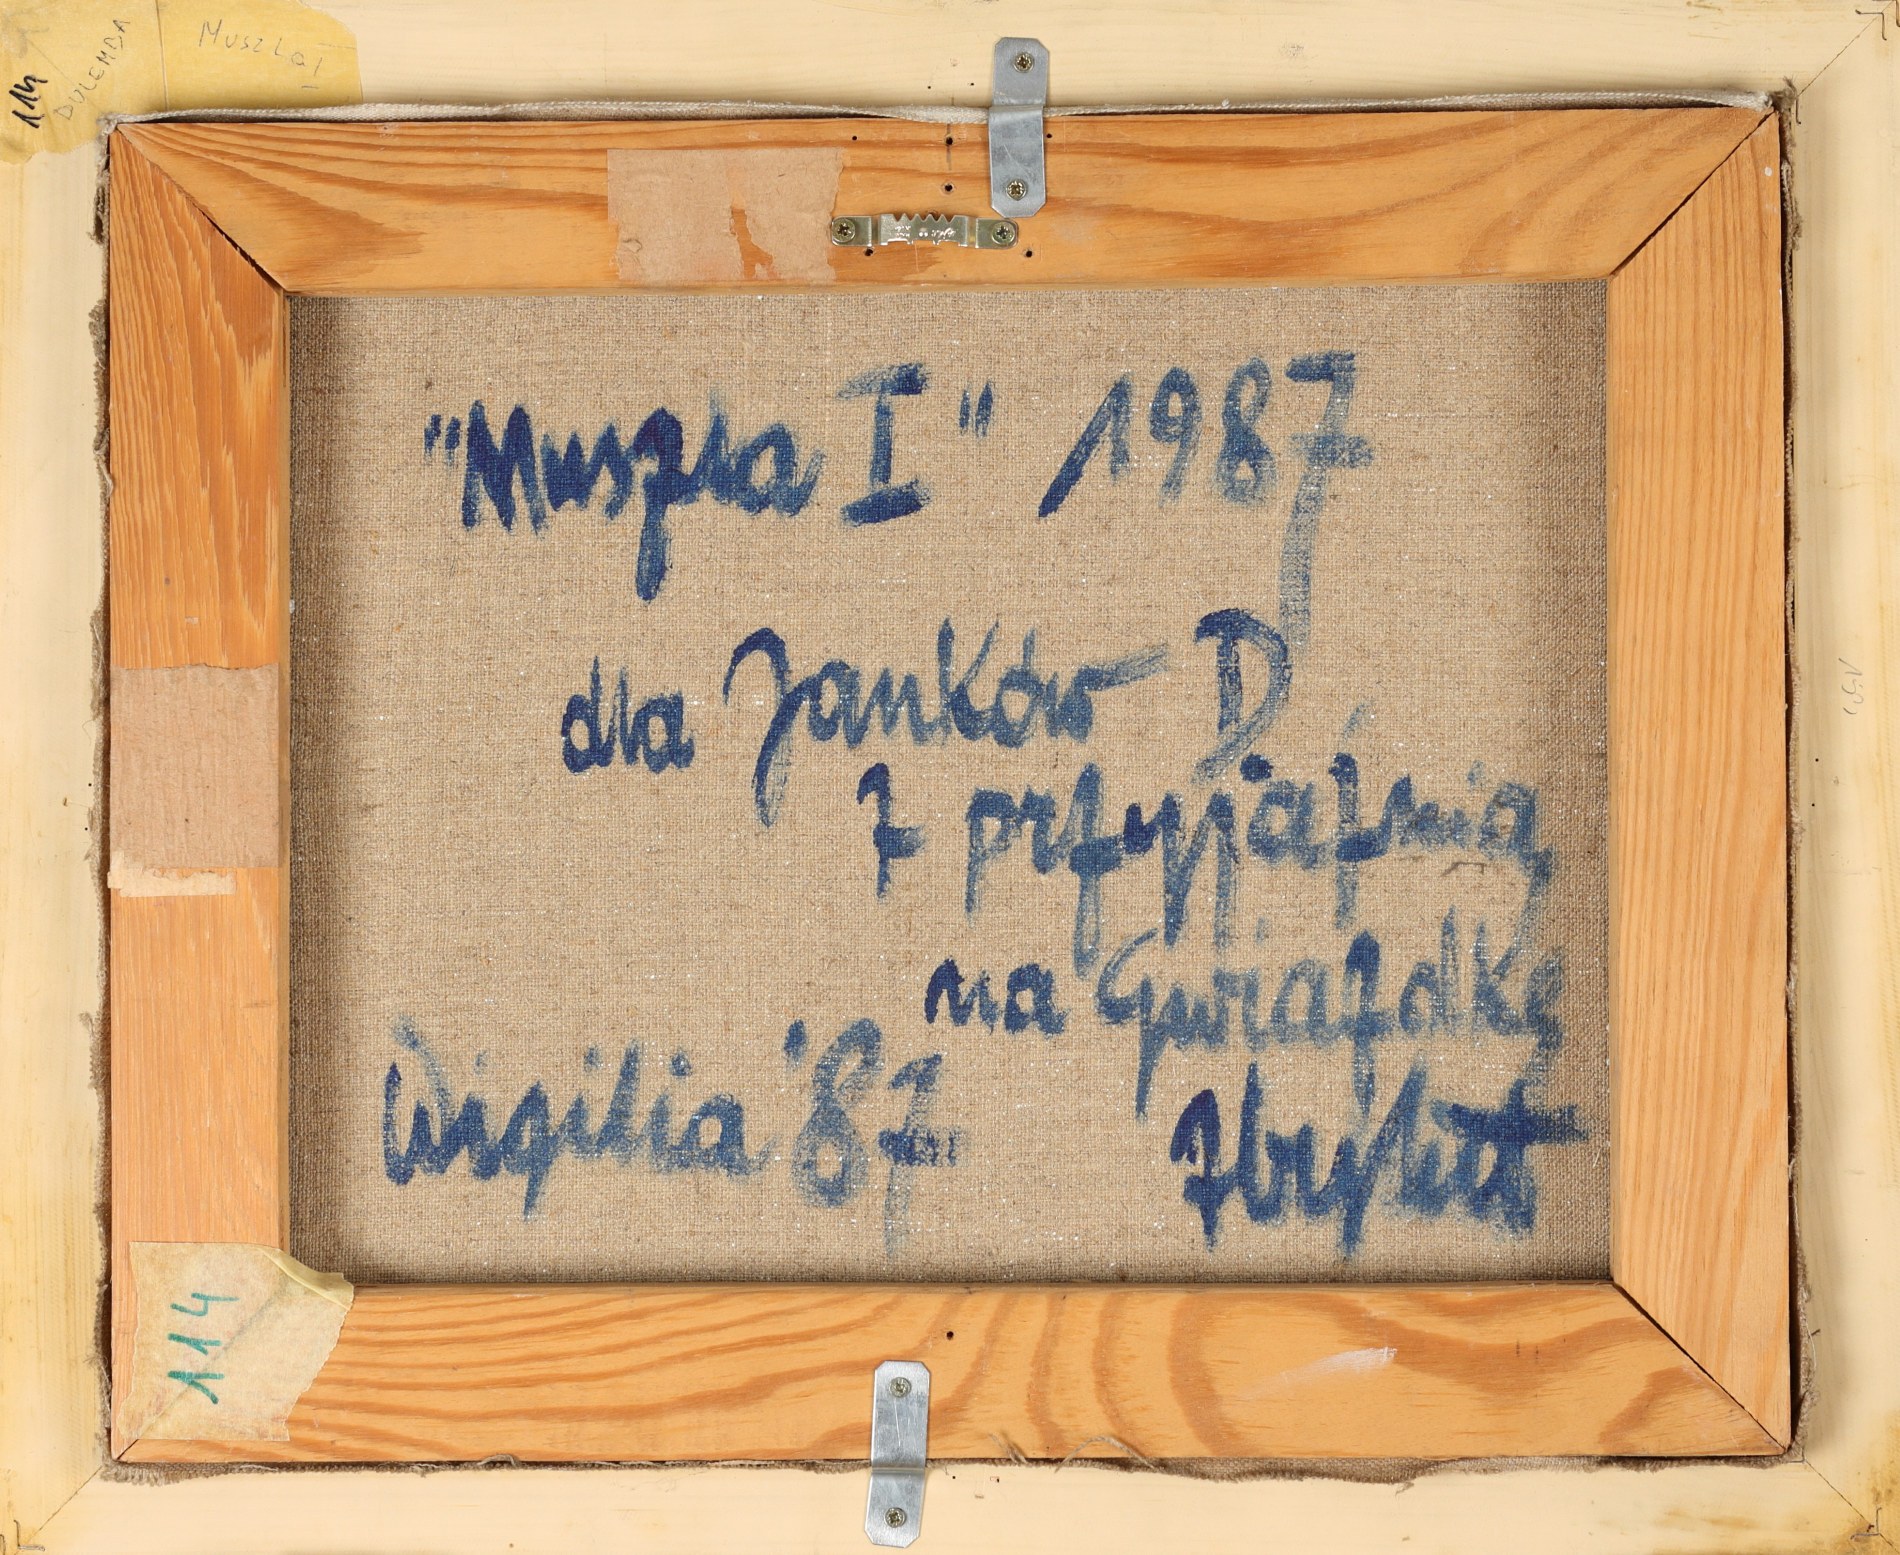 114
DULEMBA
Muszla I
"Muszla I" 1987
dla Janków D
z przyjaźnią
na Gwiazdkę
Wigilia '87
Zbylut
114